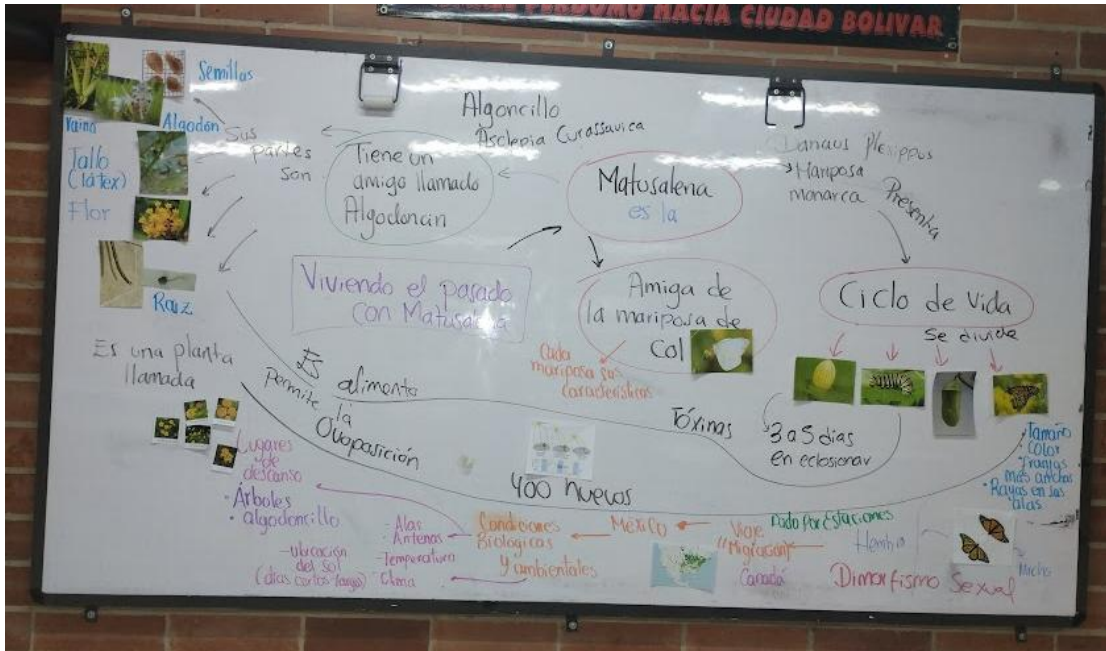 PERDOMO HACIA CIUDAD BOLIVAR
Semillas
Vaina
Algodón
Tallo
(látex)
Flor
Raiz
Sus
partes
son
Algoncillo
Asclepia Curassavica
Tiene un
amigo llamado
Algodoncin
Matusalena
es la
Danaus Plexippus
Mariposa
monarca
Presenta
Viviendo el pasado
con Matusalena
Amiga de
la mariposa de
Col
Cada
mariposa sus
caracteristicas
Ciclo de Vida
Se divide
3 a 5 dias
en eclosionar
Tamaño
color
franjas
más anchas
• Rayas en sus
alas
Es una planta
llamada
Es alimento
Tóxinas
permite la
Ovoposición
400 huevos
Lugares
de
descanso
• Árboles
• algodoncillo
- Alas
- Antenas
- Temperatura
- Clima
- ubicación
del sol
(dias cortos-largos)
Condiciones
Biologicas
y ambientales
México
Viaje
"Migración"
Canadá
Dado por Estaciones
Hembra
Macho
Dimorfismo Sexual